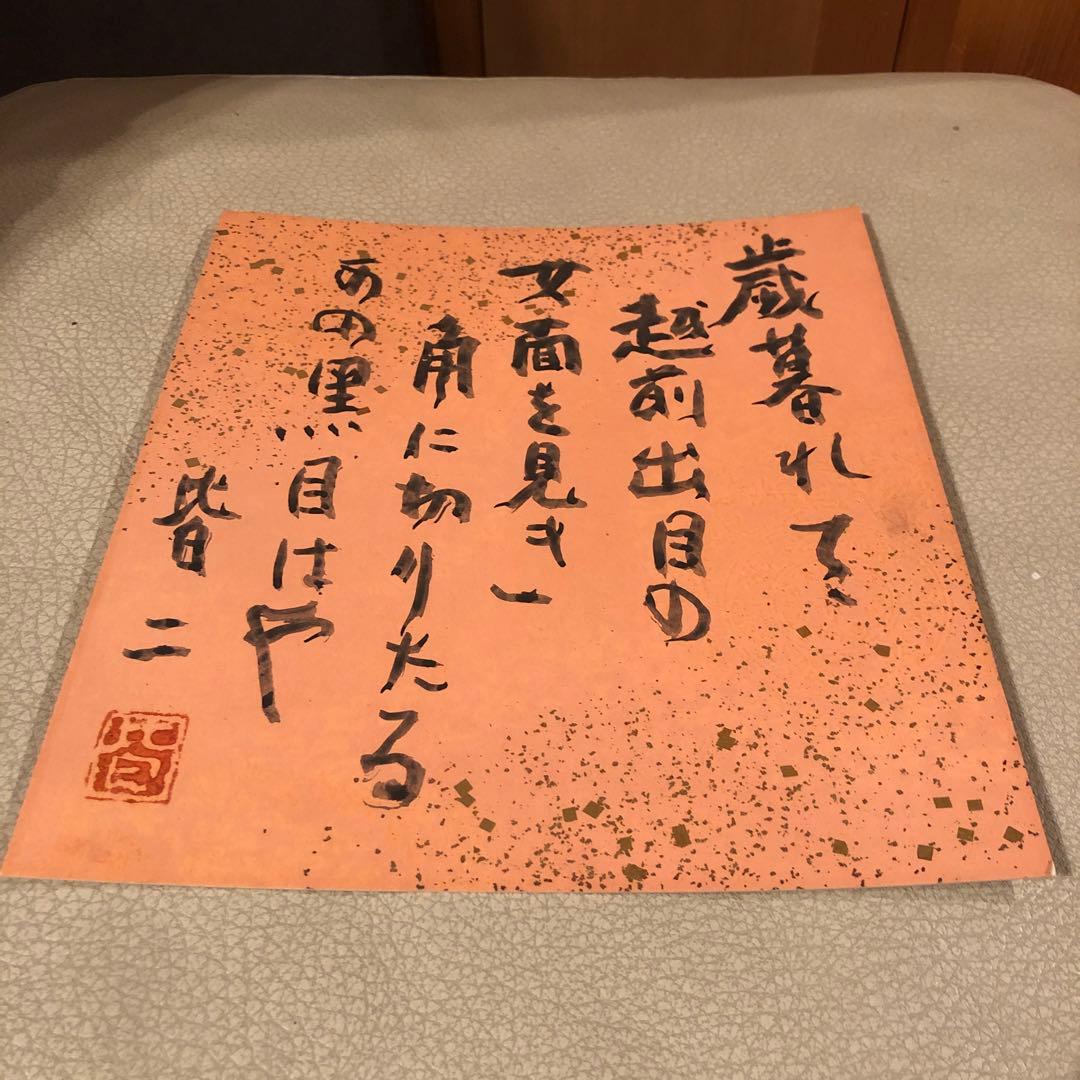 歳暮れて
越前出目の
女面を見き
角に切りたる
あの黒目はや
皆二